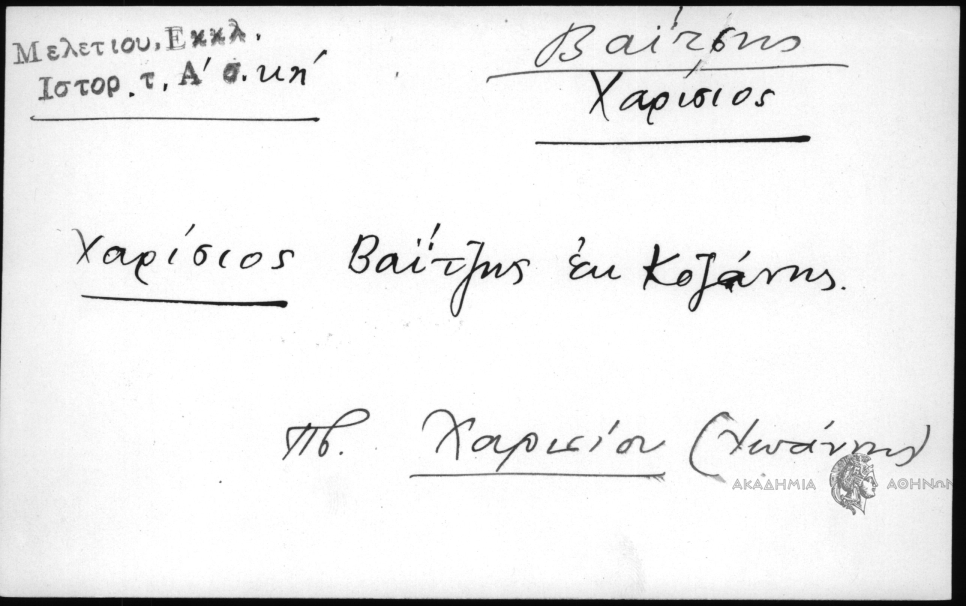 Μελετιου, Εκκλ.
Ιστορ. τ. Α' σ. κη'
Βαΐτσης
Χαρίσιος
Χαρίσιος Βαΐτζης ἐκ Κοζάνης.
πβ. Χαρισίου (Ιωάννης)
ΑΚΑΔΗΜΙΑ ΑΘΗΝΩΝ